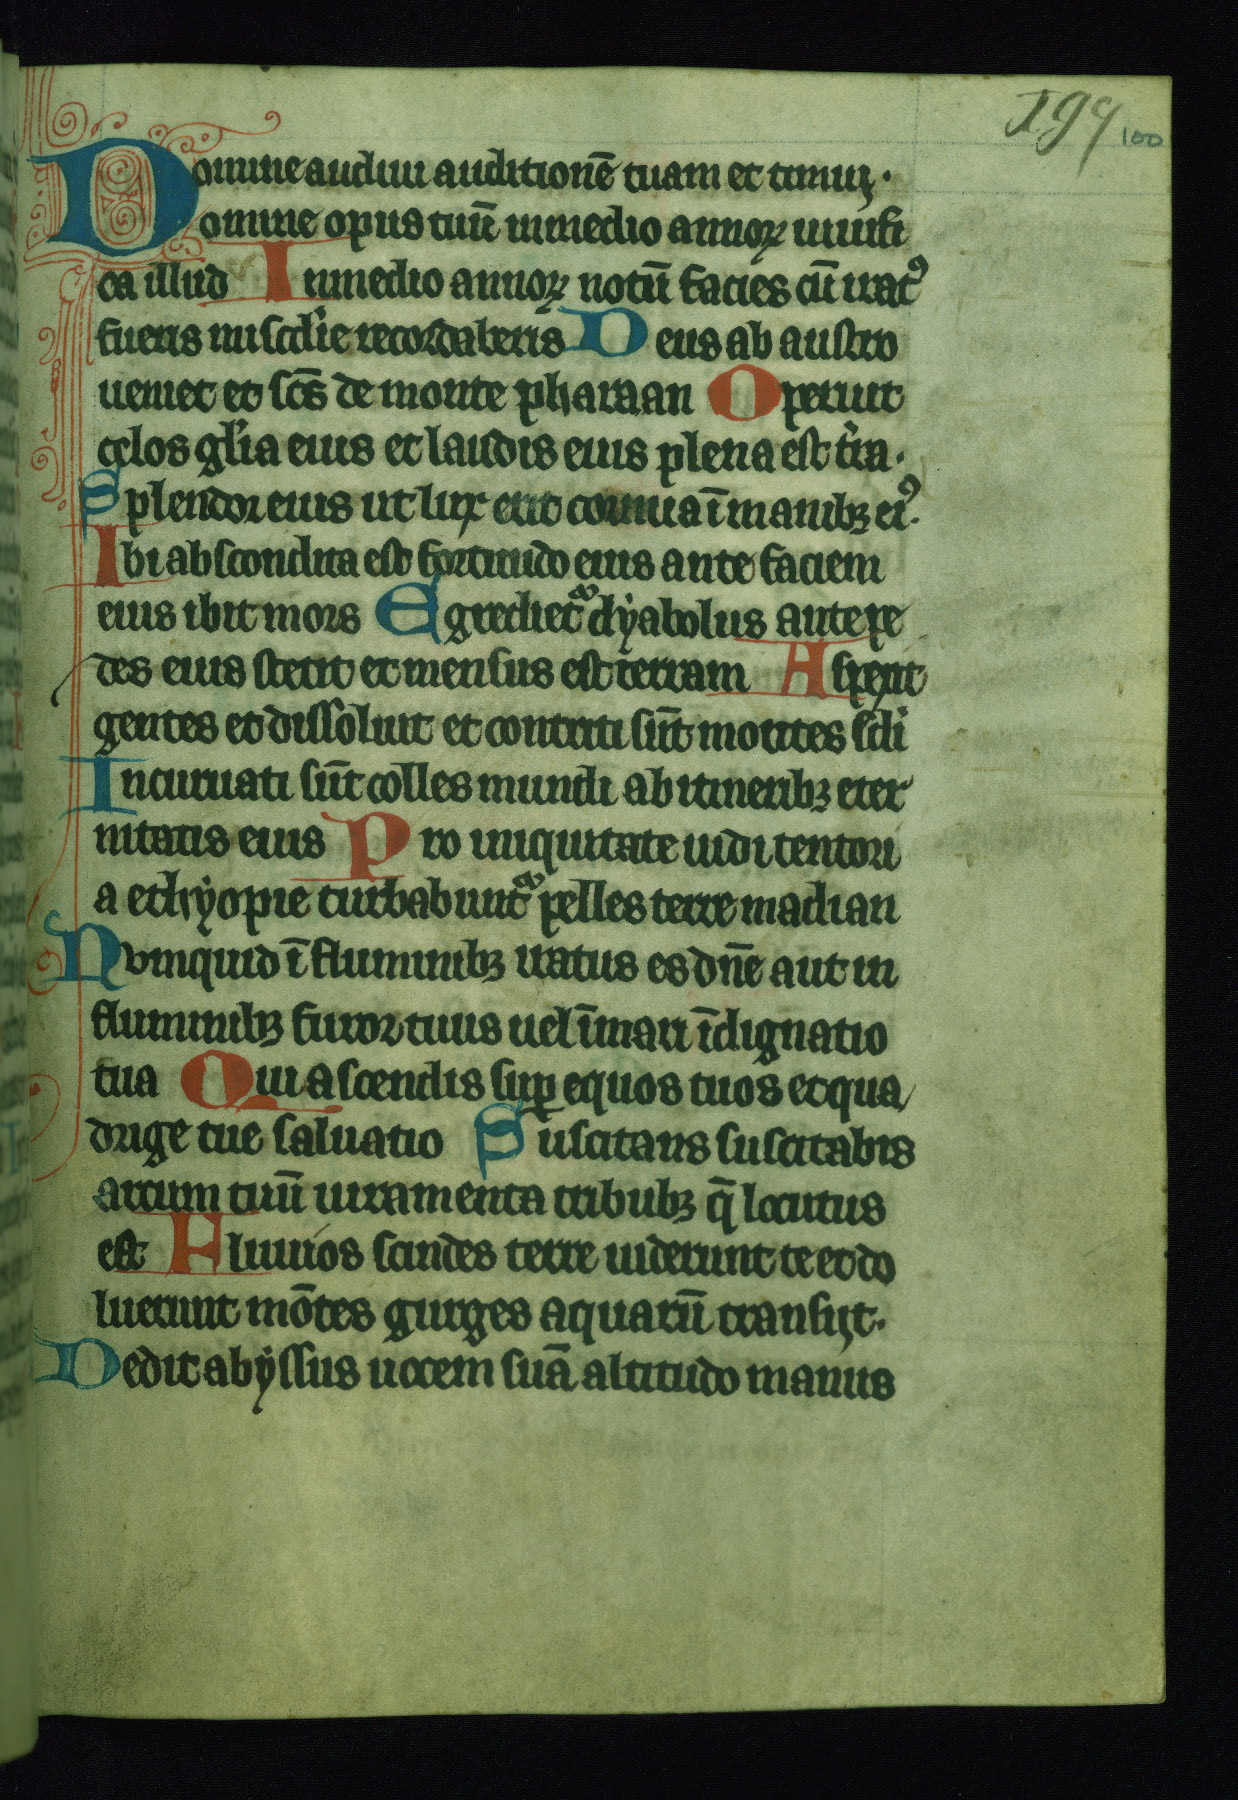 199
100
Domine audiui auditionē tuam et timuị·
Domine opus tuū in medio annoꝝ uiuifi
ca illud In medio annoꝝ notū facies cū iratꝰ
fueris misc̄die recordaberis Deus ab austro
ueniet et sc̄s de monte pharaan Operuit
celos gl̄ia eius et laudis eius plena est t̄ra.
Splendor eius ut lux erit cornua ī manibꝫ eiꝰ.
Ibi abscondita est fortitudo eius ante faciem
eius ibit mors Egrediet᷑ dẏabolus ante pe
des eius stetit et mensus est terram Aspexit
gentes et dissoluit et contriti sūt montes sc̄li
Incuruati sūt colles mundi ab itineribꝫ eter
nitatis eius Pro iniquitate uidi tentori
a ethẏopie turbabunt᷑ pelles terre madian
Nvmquid ī fluminibꝫ iratus es dn̄e aut in
fluminibꝫ furor tuus uel ī mari īdignatio
tua Qui ascendis suꝑ equos tuos et qua/
drige tue saluatio Suscitans suscitabis
arcum tuū iuramenta tribubꝫ q̄ locutus
est Fluuios scindes terre uiderunt te et do
luerunt mōtes gurges aquarū transijt.
Dedit abẏssus uocem suā altitudo manus